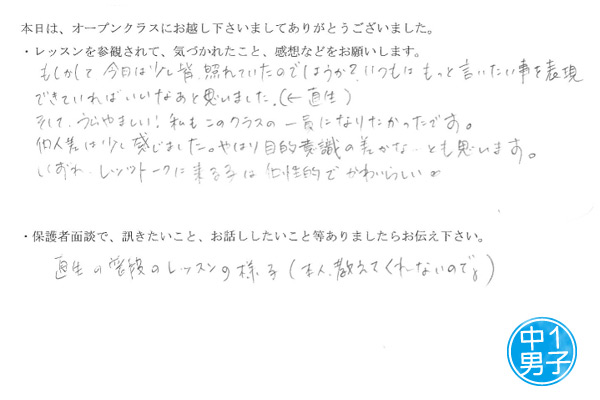 本日は、オープンクラスにお越し下さいましてありがとうございました。
・レッスンを参観されて、気づかれたこと、感想などをお願いします。
もしかして今日は少し皆、照れていたのでしょうか？いつもはもっと言いたい事を表現
できていればいいなあと思いました。(←直生)
そして、うらやましい！私もこのクラスの一員になりたかったです。
個人差は少し感じました。やはり目的意識の差かな、とも思います。
いずれ、レッツトークに来る子は個性的でかわいらしい
・保護者面談で、訊きたいこと、お話ししたいこと等ありましたらお伝え下さい。
直生の普段のレッスンの様子(本人、教えてくれないので。)
中1
男子